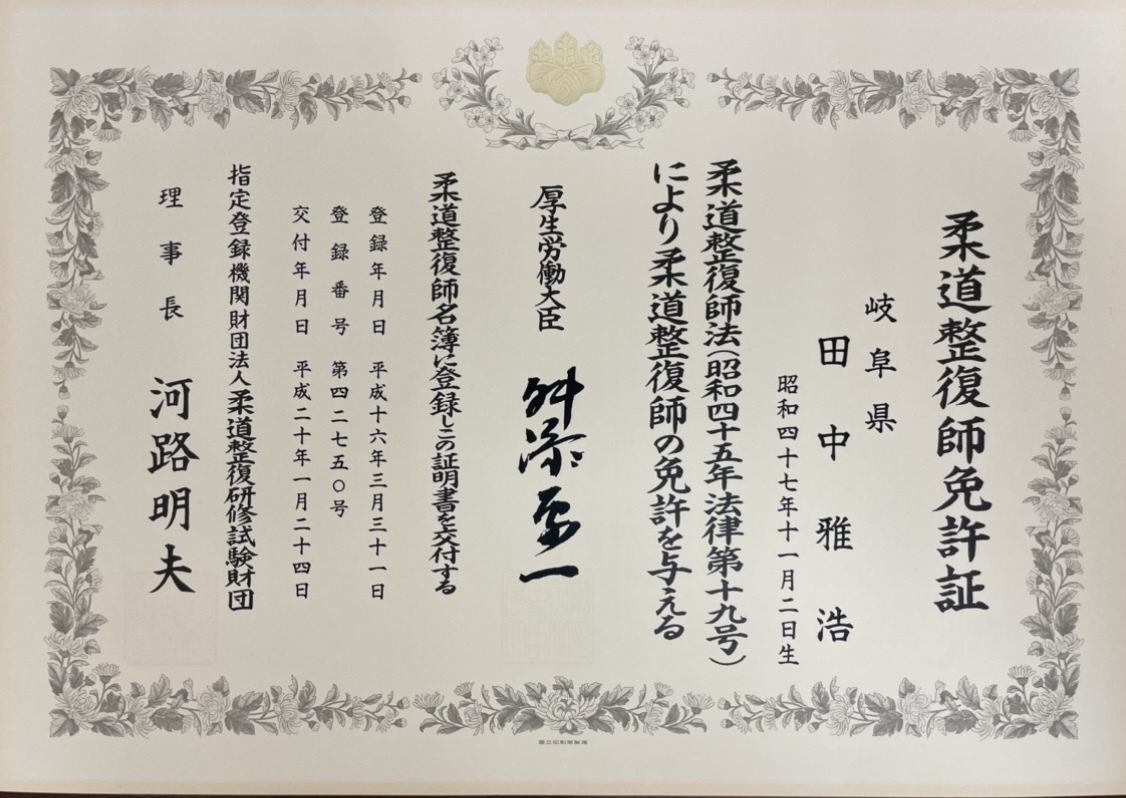 柔道整復師免許証
岐阜県
田中雅浩
昭和四十七年十一月二日生
柔道整復師法(昭和四十五年法律第十九号)
により柔道整復師の免許を与える
厚生労働大臣 舛添要一
柔道整復師名簿に登録しこの証明書を交付する
登録年月日 平成十六年三月三十一日
登録番号 第四二七五〇号
交付年月日 平成二十年一月二十四日
指定登録機関財団法人柔道整復研修試験財団
理事長 河路明夫
国立印刷局製造